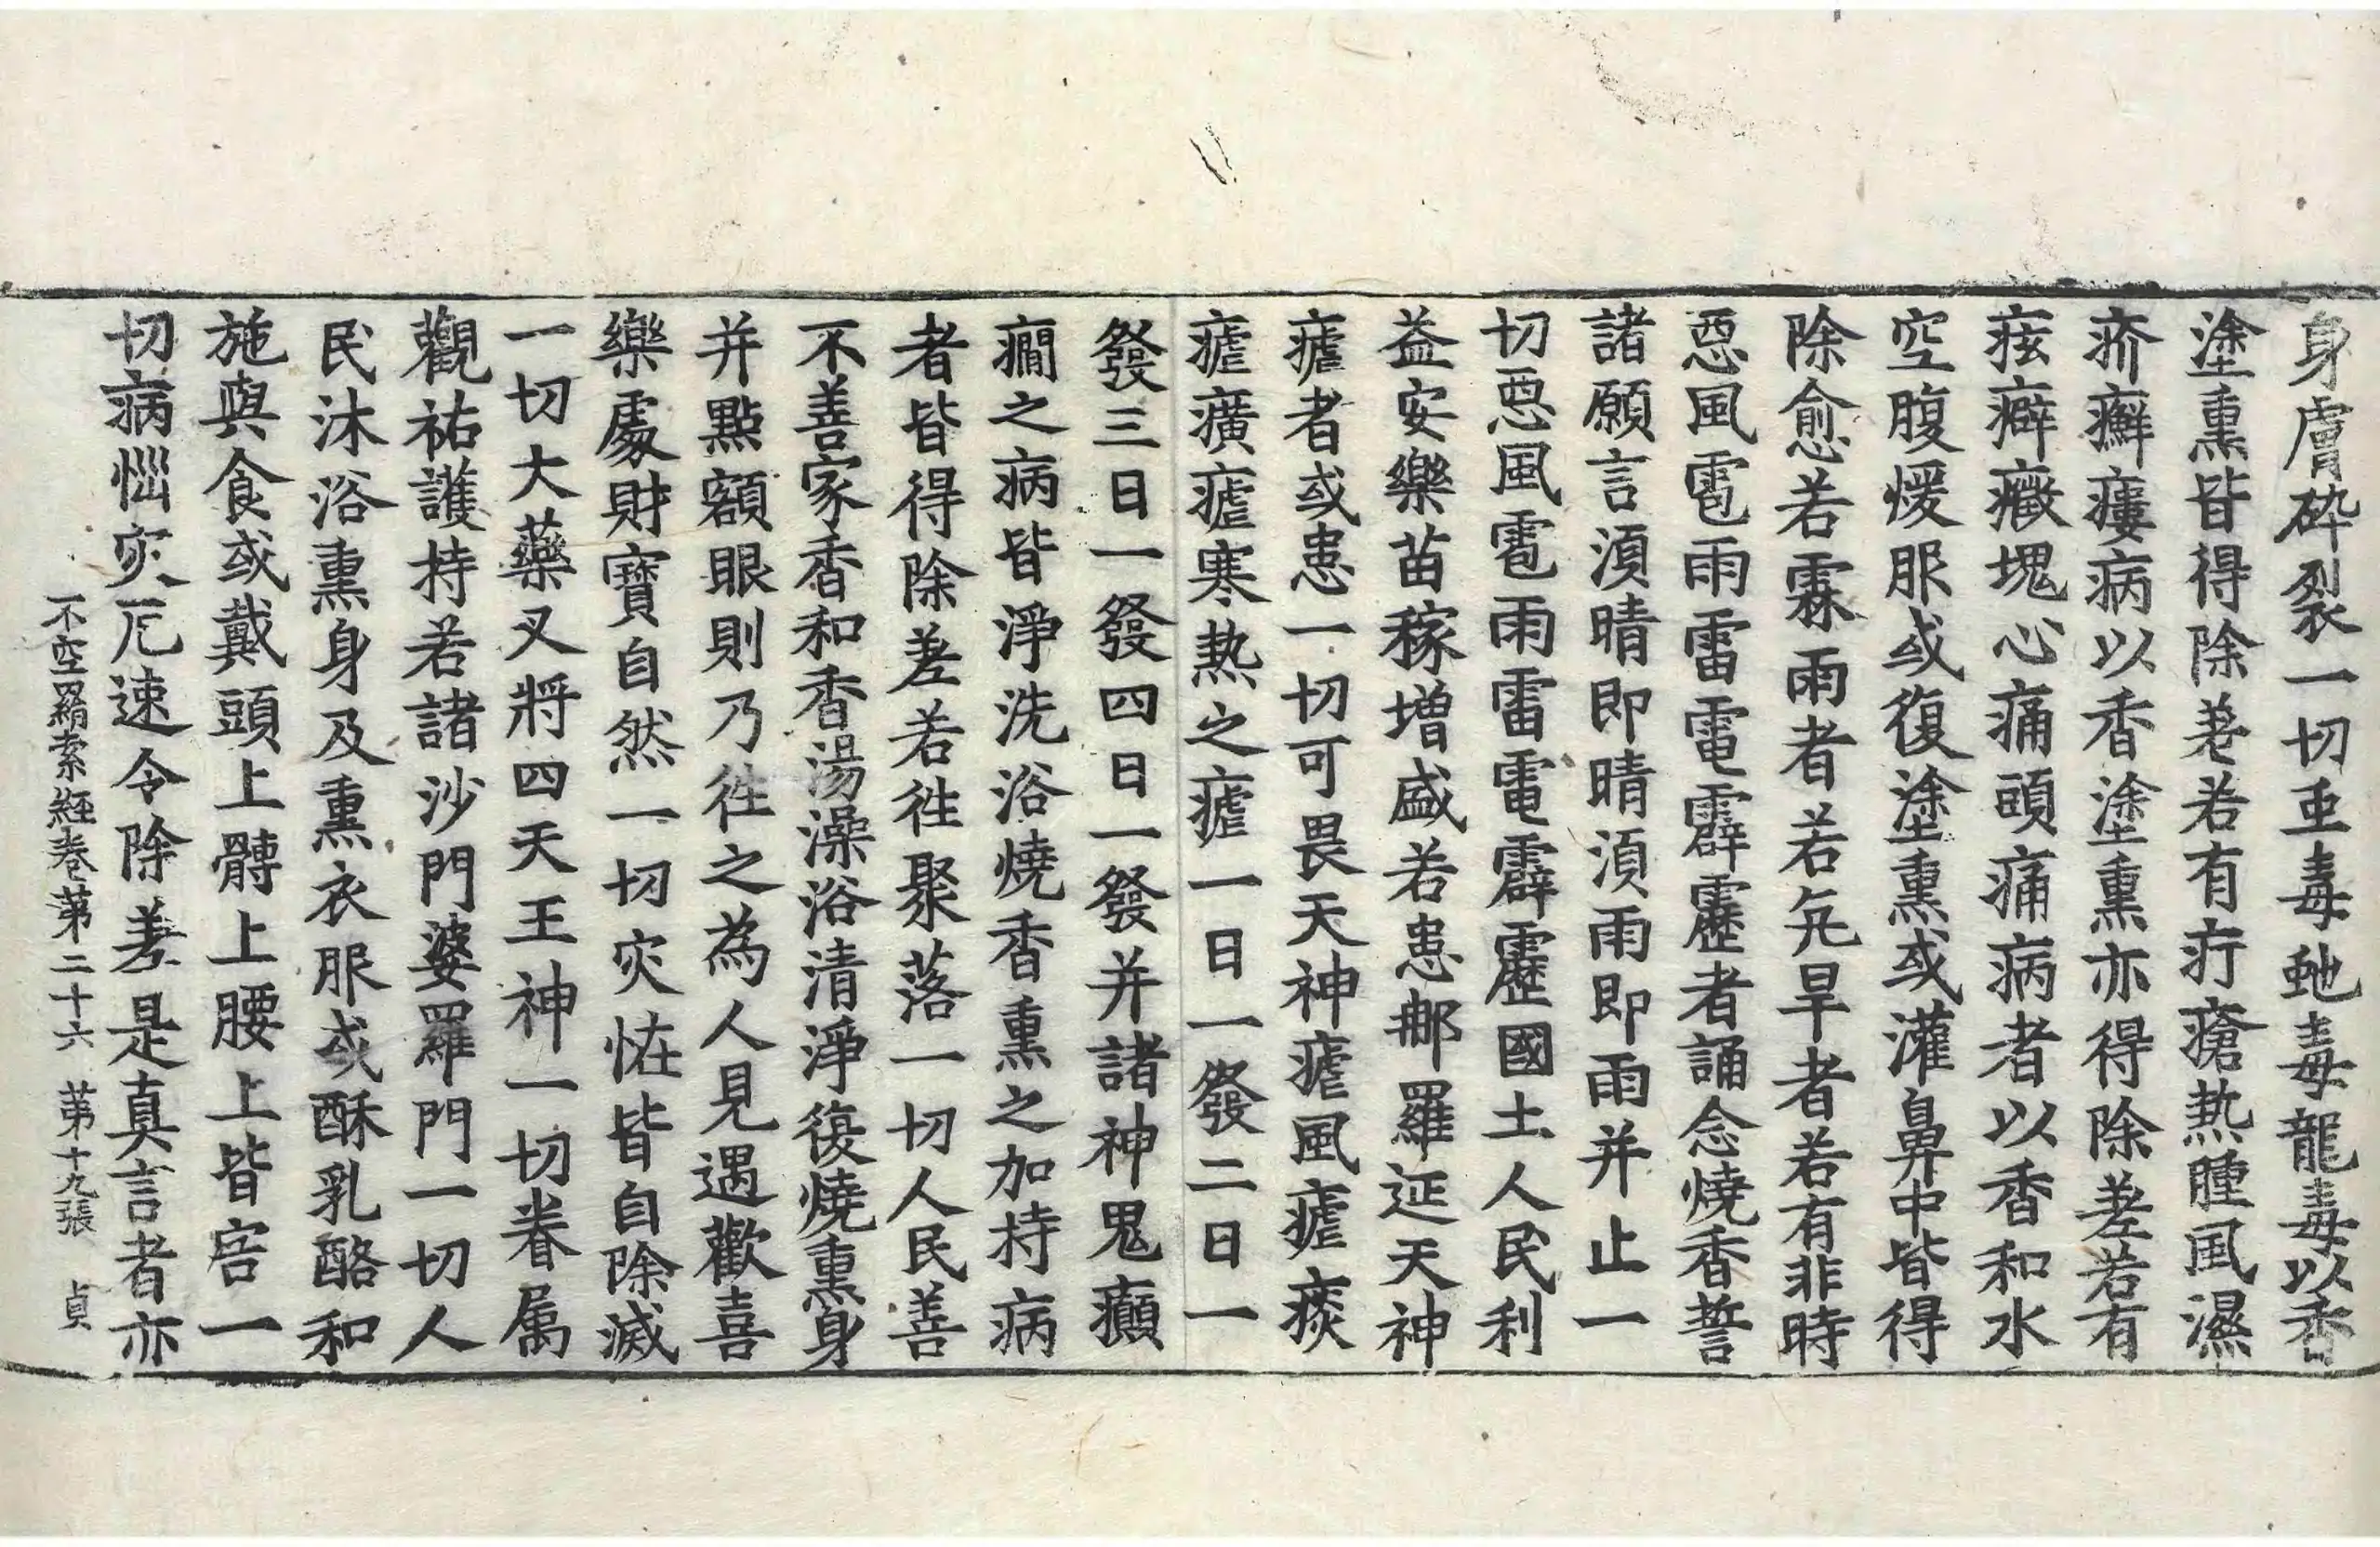 身膚砕裂一切𧈭毒虵毒龍毒以香
塗熏皆得除差若有疔瘡熱腫風濕
疥癬瘻病以香塗熏亦得除差若有
痃癖癥塊心痛頭痛病者以香和水
空腹煖服或復塗熏或灌鼻中皆得
除愈若霖雨者若亢旱者若有非時
惡風雹雨雷電霹靂者誦念燒香誓
諸願言湏晴即晴湏雨即雨并止一
切惡風雹雨雷電霹靂國土人民利
益安樂苗稼增盛若患那羅延天神
瘧者或患一切可畏天神瘧風瘧痰
瘧癀瘧寒熱之瘧一日一發二日一
發三日一發四日一發并諸神鬼癲
癇之病皆淨洗浴燒香熏之加持病
者皆得除差若徃聚落一切人民善
不善家香和香湯澡浴清淨復燒熏身
并點額眼則乃徃之為人見遇歡喜
樂處財寶自然一切灾恠皆自除滅
一切大藥叉將四天王神一切眷属
觀祐護持若諸沙門婆羅門一切人
民沐浴熏身及熏衣服或酥乳酪和
施與食或戴頭上髆上腰上皆宿一
切病惱灾厄速令除差是真言者亦
不空羂索經卷第二十六 第十九張 貞